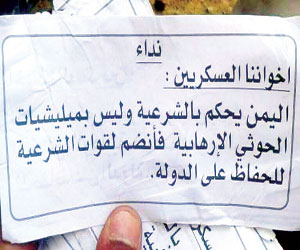 نداء
اخواننا العسكريين :
اليمن يحكم بالشرعية وليس بميليشيات
الحوثي الإرهابية فأنضم لقوات الشرعية
للحفاظ على الدولة.